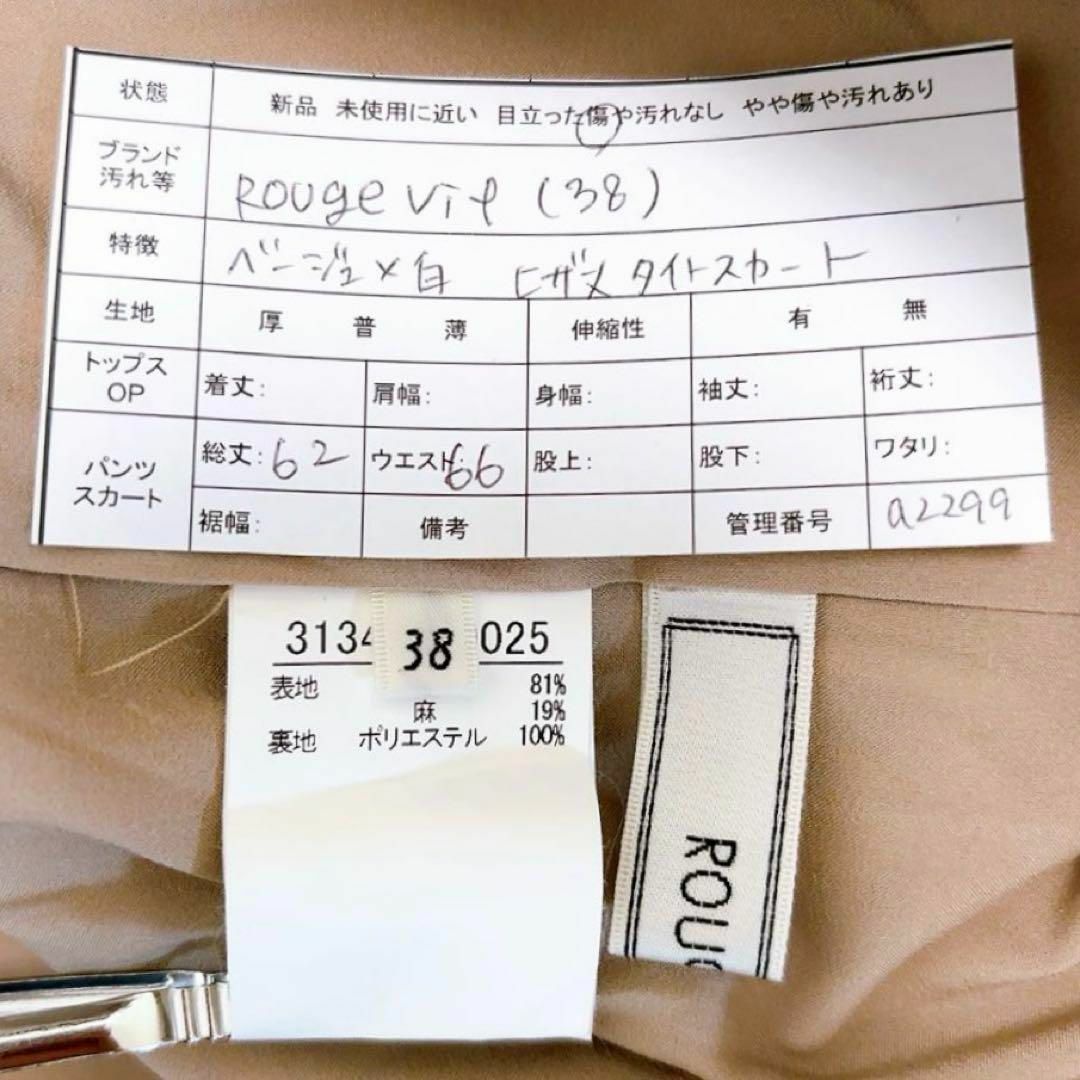 状態 新品 未使用に近い 目立った傷や汚れなし やや傷や汚れあり
ブランド
汚れ等
Rouge vif (38)
特徴 ベージュ×白 ヒザ丈 タイトスカート
生地 厚 普 薄 伸縮性 有 無
トップス
OP
着丈: 肩幅: 身幅: 袖丈: 裄丈:
パンツ
スカート
総丈:62 ウエスト:66 股上: 股下: ワタリ:
裾幅: 備考 管理番号 a2299
3134 38 025
表地 81%
麻 19%
裏地 ポリエステル 100%
ROUG